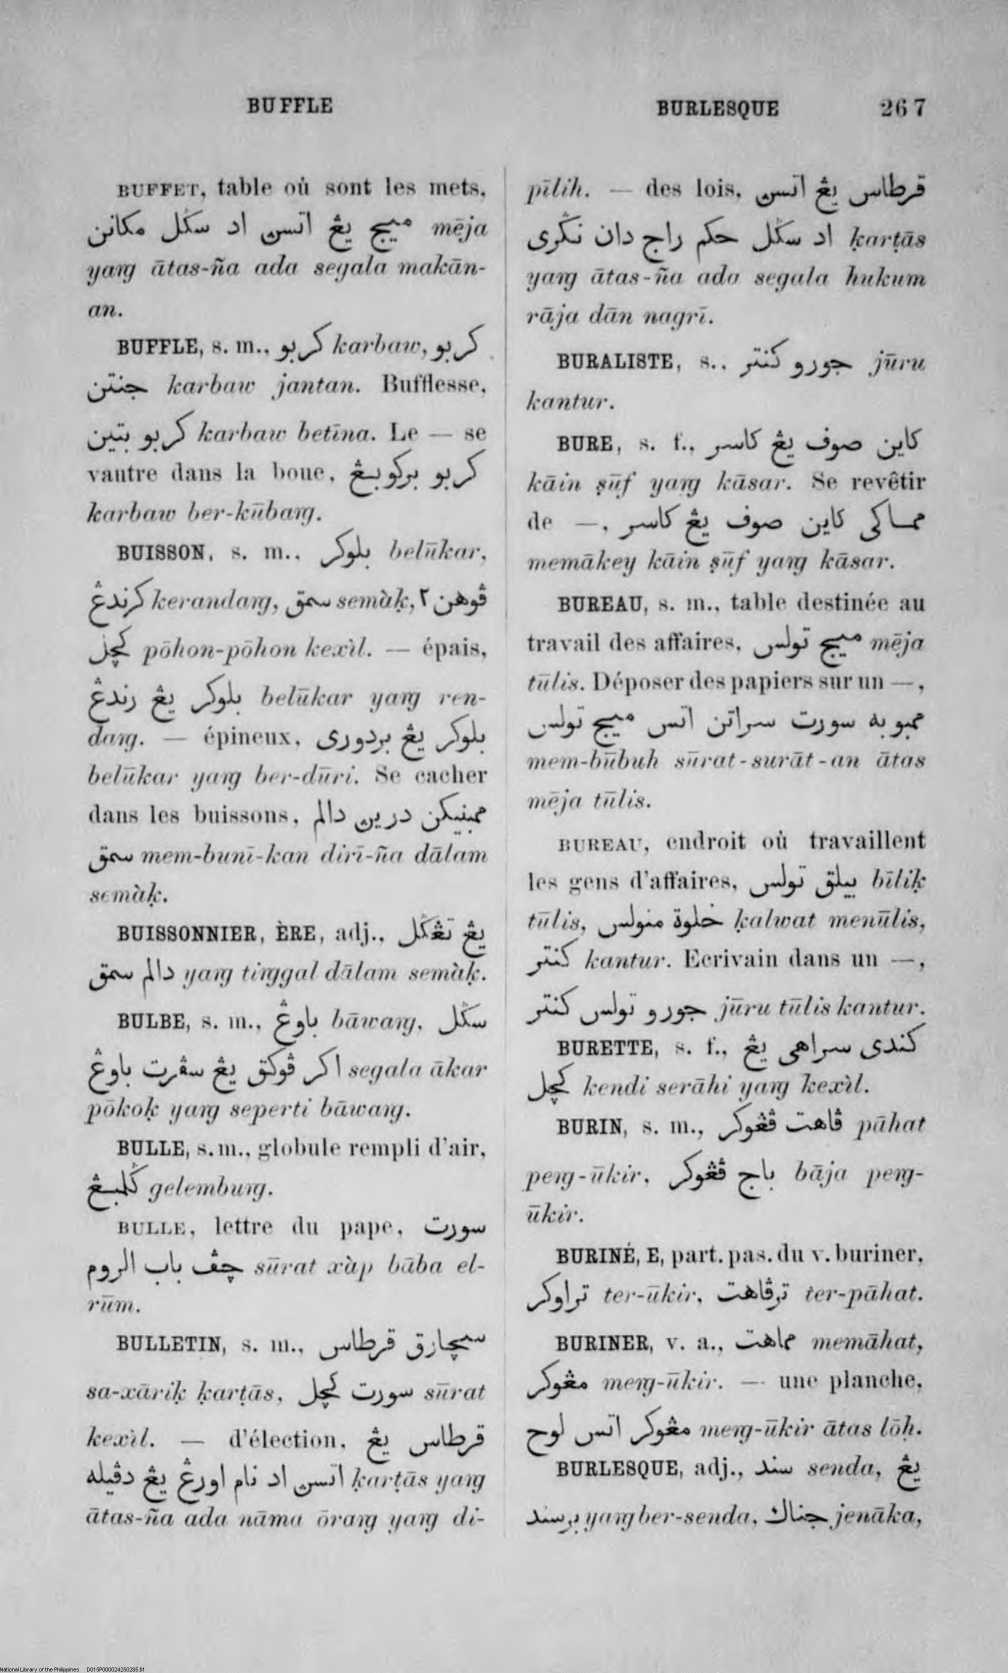 BUFFLE
BURLESQUE 267
BUFFET, table où sont les mets,
ميج يڠ اتسن اد سݢل مكانن mēja
yaŋ ātas-ña ada segala makān-
an.
BUFFLE, s. m., كربو karbaw, كربو
جنتن karbaw jantan. Bufflesse,
كربو بتين karbaw betīna. Le — se
vautre dans la boue, كربو بركوبڠ
karbaw ber-kūbaŋ.
BUISSON, s. m., بلوكر belūkar,
كرندڠ kerandaŋ, سمق semàḳ, ڤوهن٢
كچل pōhon-pōhon kexìl. — épais,
بلوكر يڠ رندڠ belūkar yaŋ ren-
daŋ. — épineux, بلوكر يڠ بردورى
belūkar yaŋ ber-dūri. Se cacher
dans les buissons, ممبنيكن درين دالم
سمق mem-bunī-kan dirī-ña dālam
semàḳ.
BUISSONNIER, ÈRE, adj., يڠ تڠݢل
دالم سمق yaŋ tiŋgal dālam semàḳ.
BULBE, s. m., باوڠ bāwaŋ, سݢل
اكر ڤوكق يڠ سڤرت باوڠ segala ākar
pōkoḳ yaŋ seperti bāwaŋ.
BULLE, s. m., globule rempli d'air,
ݢلمبڠ gelembuŋ.
BULLE, lettre du pape, سورت
چڤ باب الروم sūrat xàp bāba el-
rūm.
BULLETIN, s. m., سچارق قرطاس
sa-xāriḳ ḳarṭās, سورت كچل sūrat
kexìl. — d'élection, قرطاس يڠ
اتسن اد نام اورڠ يڠ دڤيله ḳarṭās yaŋ
ātas-ña ada nāma ōraŋ yaŋ di-
pīlih. — des lois, قرطاس يڠ اتسن
اد سݢل حكم راج دان نݢرى ḳarṭās
yaŋ ātas-ña ada segala hukum
rāja dān nagrī.
BURALISTE, s., جورو كنتر jūru
kantur.
BURE, s. f., كاين صوف يڠ كاسر
kāin ṣūf yaŋ kāsar. Se revêtir
de —, مماكى كاين صوف يڠ كاسر
memākey kāin ṣūf yaŋ kāsar.
BUREAU, s. m., table destinée au
travail des affaires, ميج تولس mēja
tūlis. Déposer des papiers sur un —,
ممبوبه سورت سراتن اتس ميج تولس
mem-būbuh sūrat-surāt-an ātas
mēja tūlis.
BUREAU, endroit où travaillent
les gens d'affaires, بيلق تولس bīliḳ
tūlis, خلوة منولس ḳalwat menūlis,
كنتر kantur. Ecrivain dans un —,
جورو تولس كنتر jūru tūlis kantur.
BURETTE, s. f., كندى سراهى يڠ
كچل kendi serāhi yaŋ kexìl.
BURIN, s. m., ڤاهت ڤڠوكر pāhat
peŋ-ūkir, باج ڤڠوكر bāja peŋ-
ūkir.
BURINÉ, E, part. pas. du v. buriner,
تراوكر ter-ūkir, ترڤاهت ter-pāhat.
BURINER, v. a., ماهت memāhat,
مڠوكر meŋ-ūkir. — une planche,
مڠوكر اتس لوح meŋ-ūkir ātas lōḥ.
BURLESQUE, adj., سند senda, يڠ
برسند yaŋ ber-senda, جناك jenāka,
National Library of the Philippines